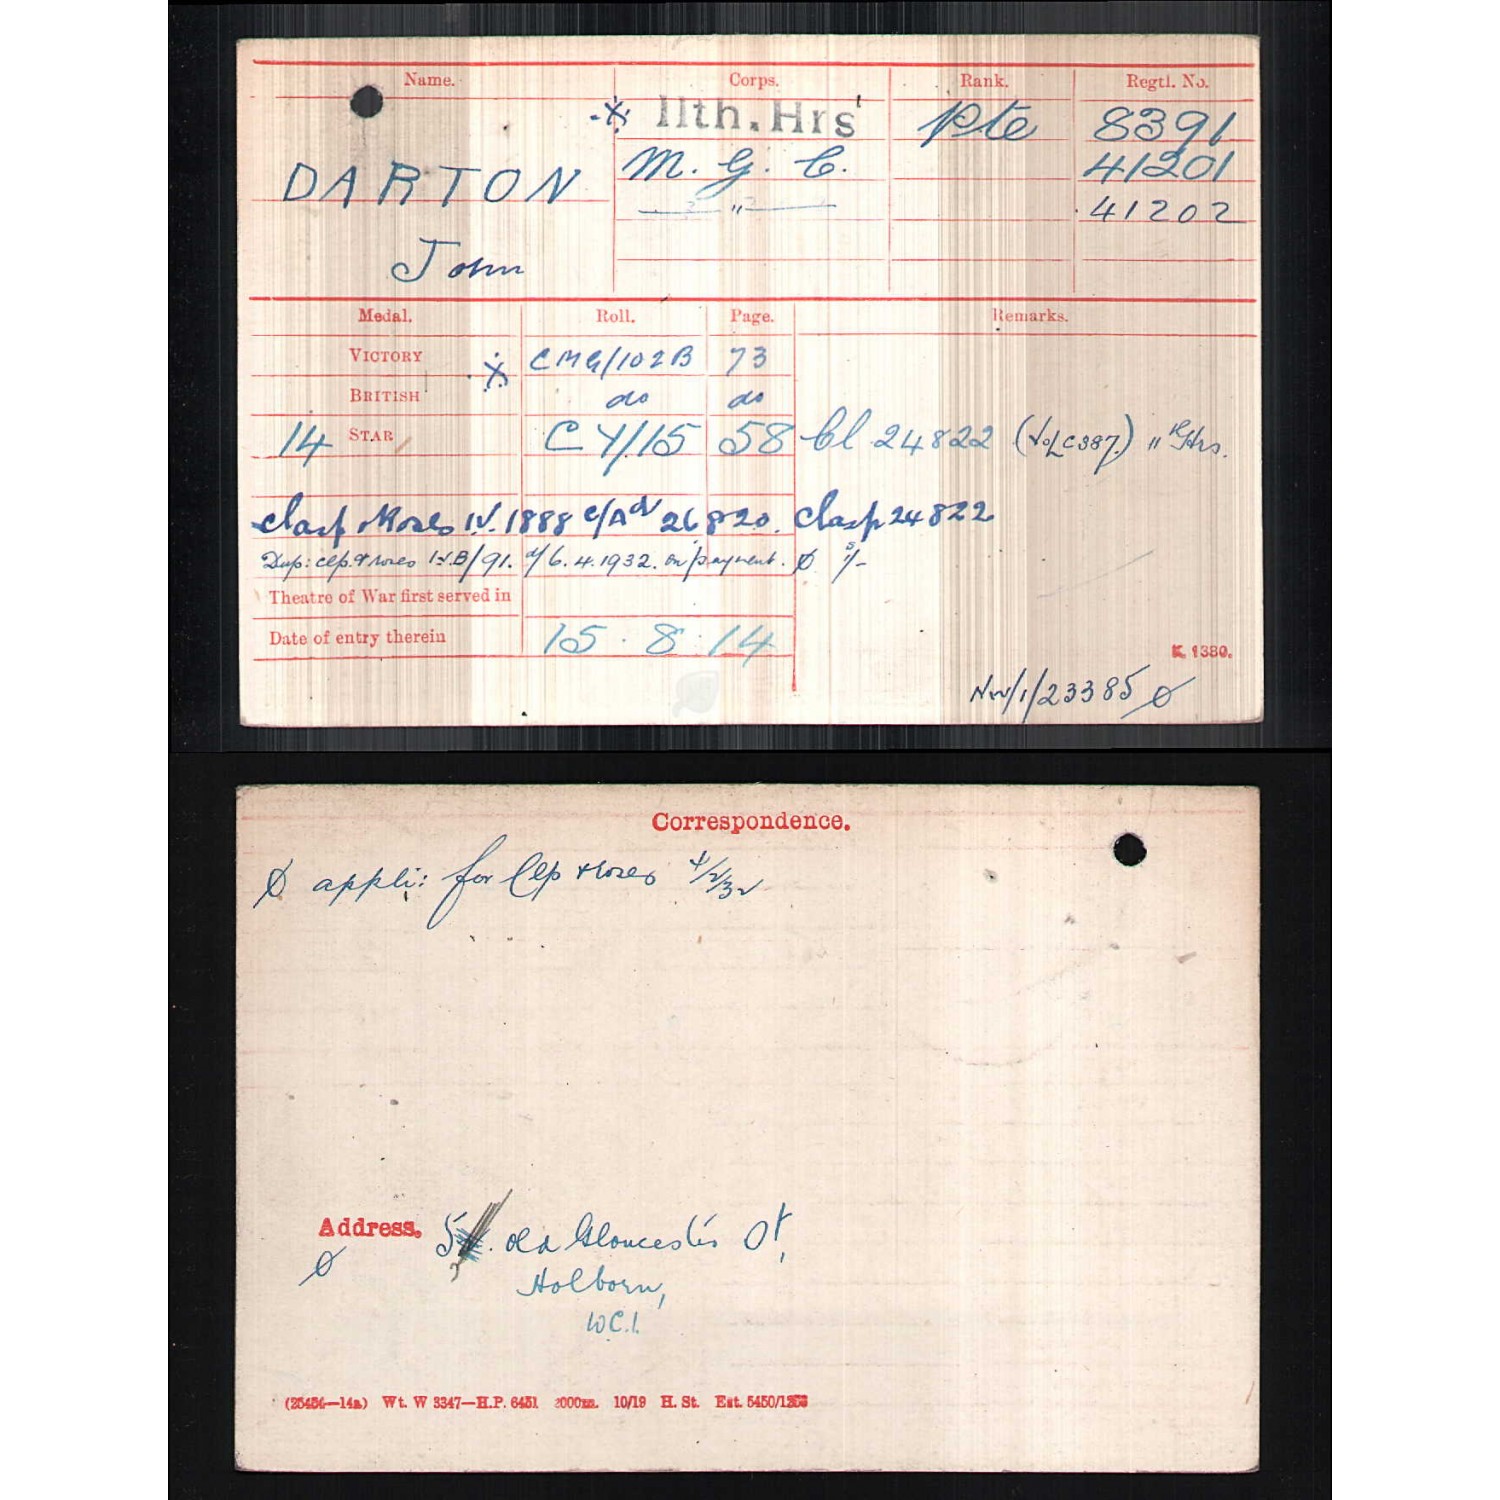 Name. Corps. Rank. Regtl. No.
11th. Hrs Pte 8391
DARTON M. G. C. 41201
" 41202
John
Medal. Roll. Page. Remarks.
VICTORY CMG/102B 73
BRITISH do do
14 STAR CY/15 58 Cl 24822 11th Hrs.
Clasp & Roses IV. 1888 26820. Clasp 24822
Dup: clp. & roses IV.B/91. d/6.4.1932. on payment. Ø
Theatre of War first served in
Date of entry therein 15.8.14
K. 1380.
NW/1/23385 Ø
Correspondence.
Ø appli: for Clp & roses 4/2/32
Address. Old Gloucester St,
Ø Holborn,
WC.1.
Wt. W 3347—H.P. 6451 10/19 H. St.